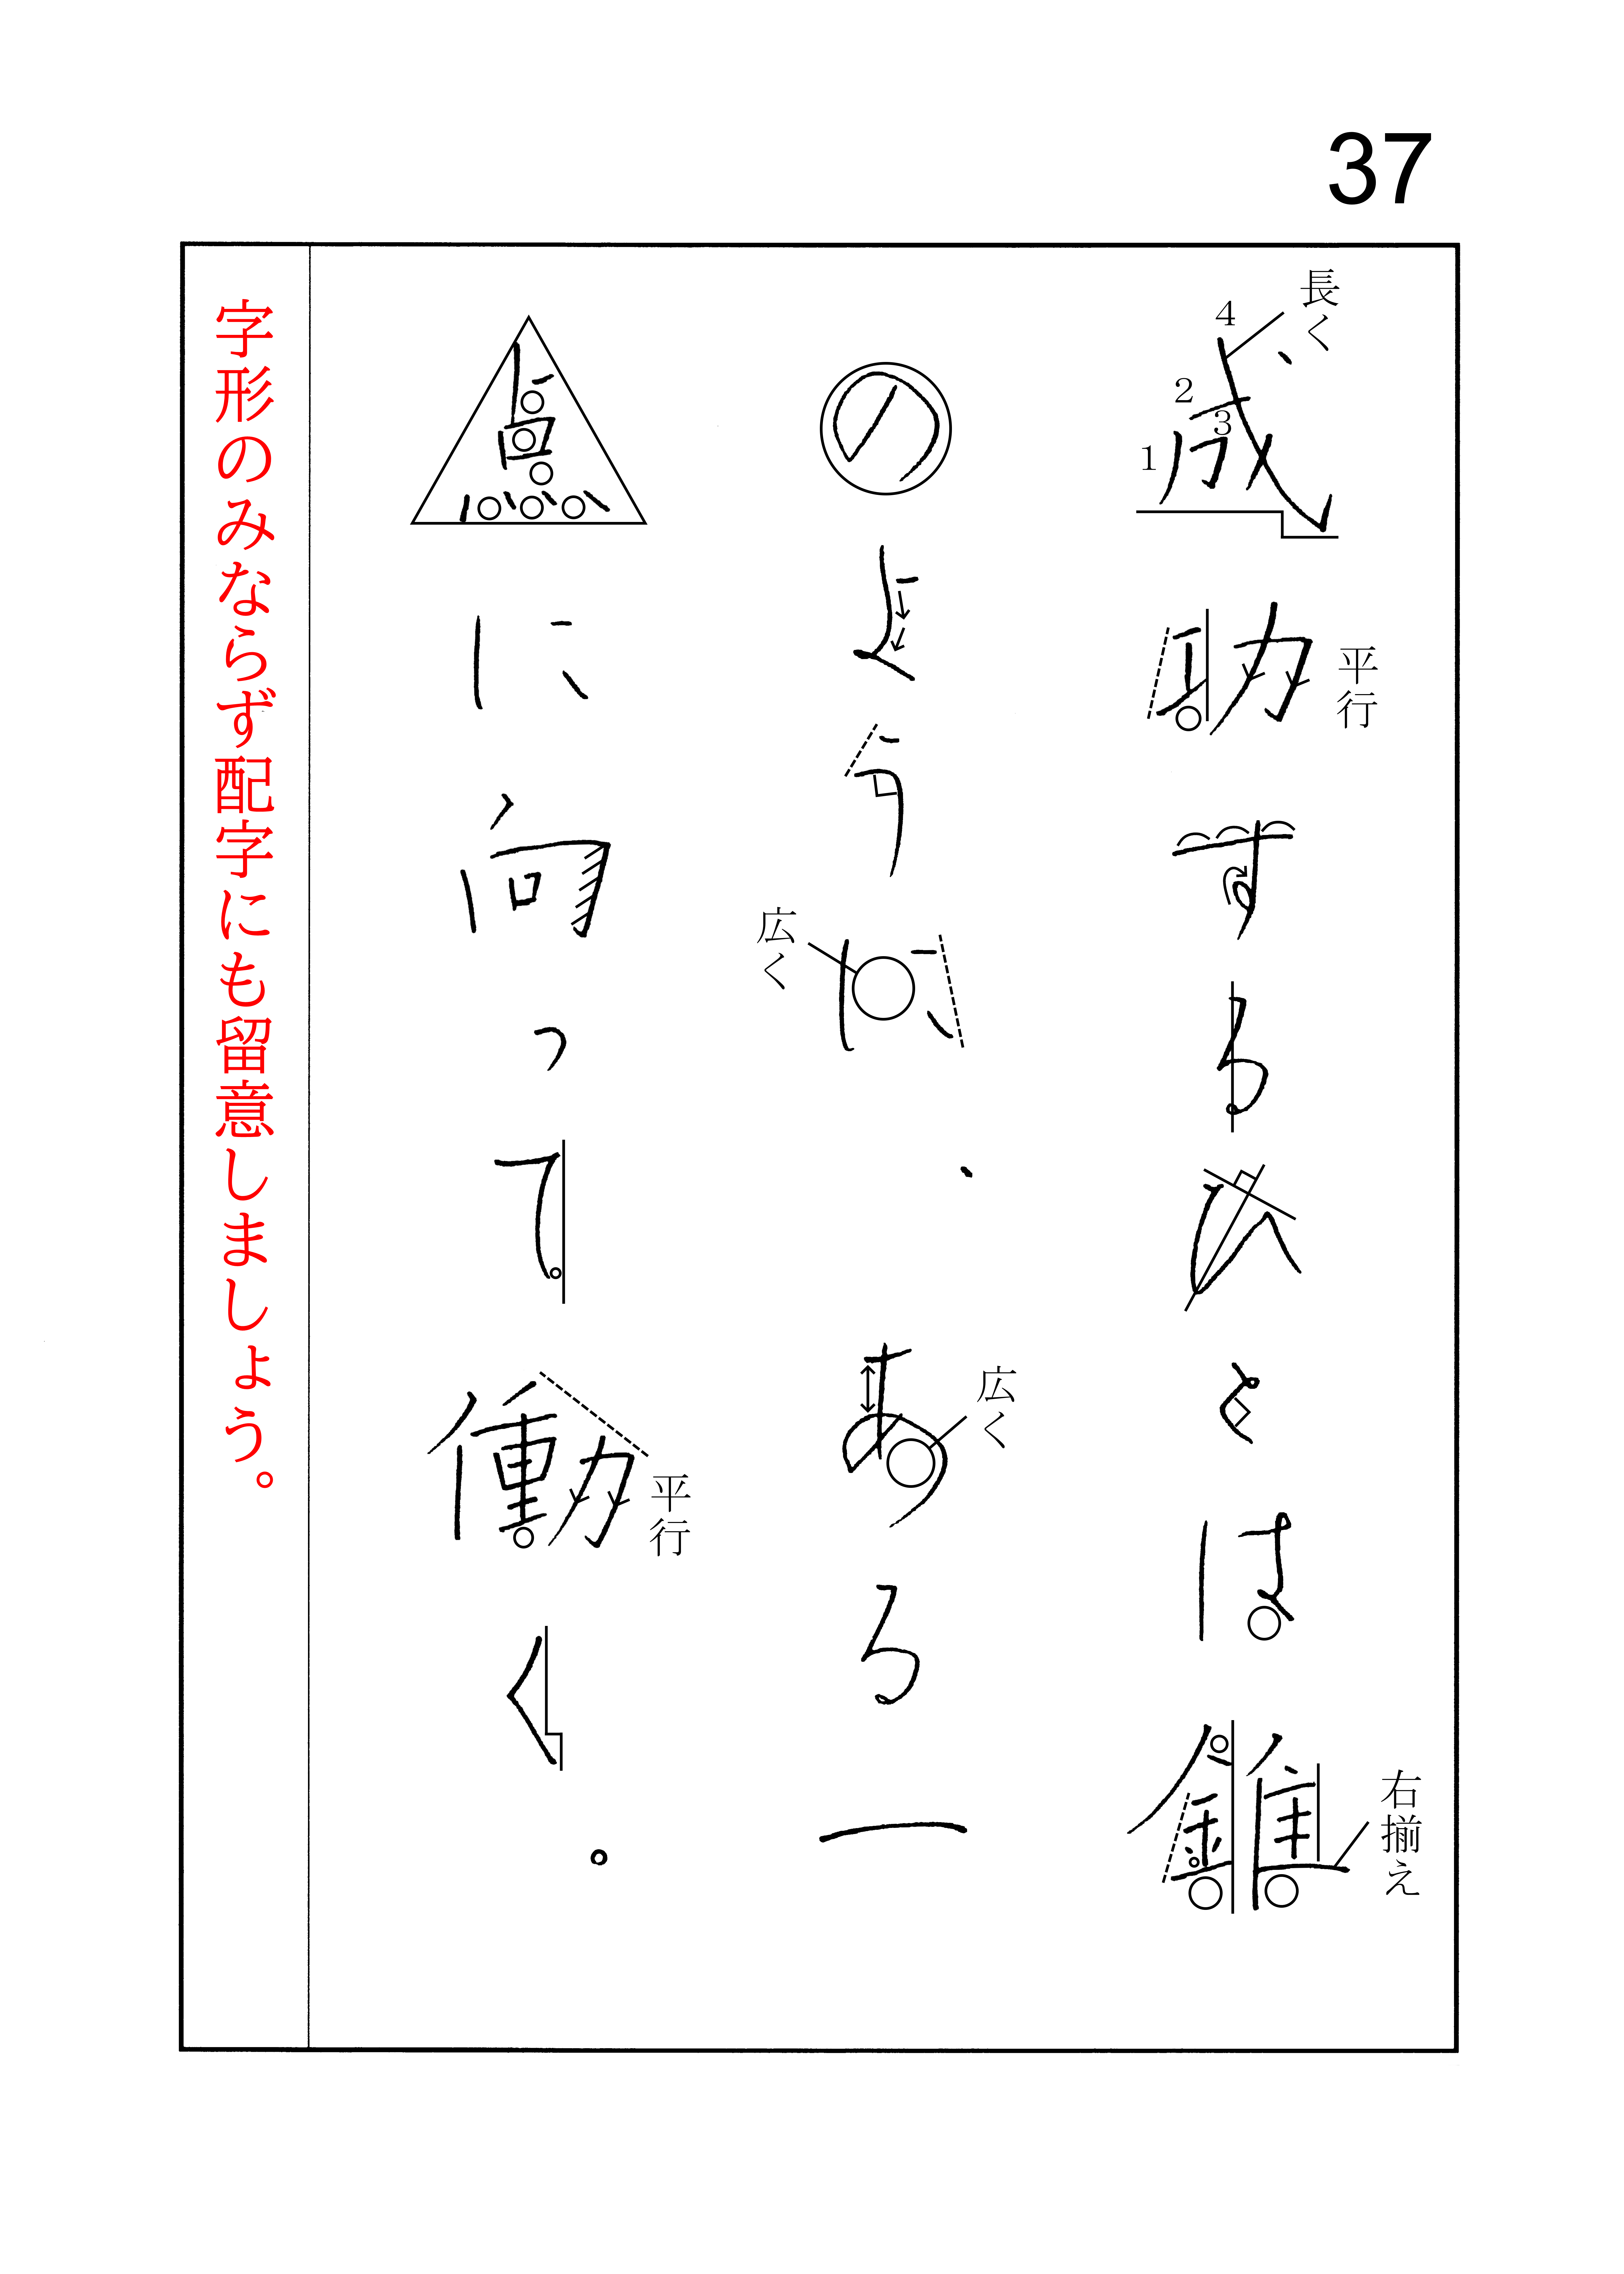 37
長く
4
2
3
1
平行
右揃え
成功するひとは錐
広く
広く
のように、ある一
平行
点に向って働く。
字形のみならず配字にも留意しましょう。